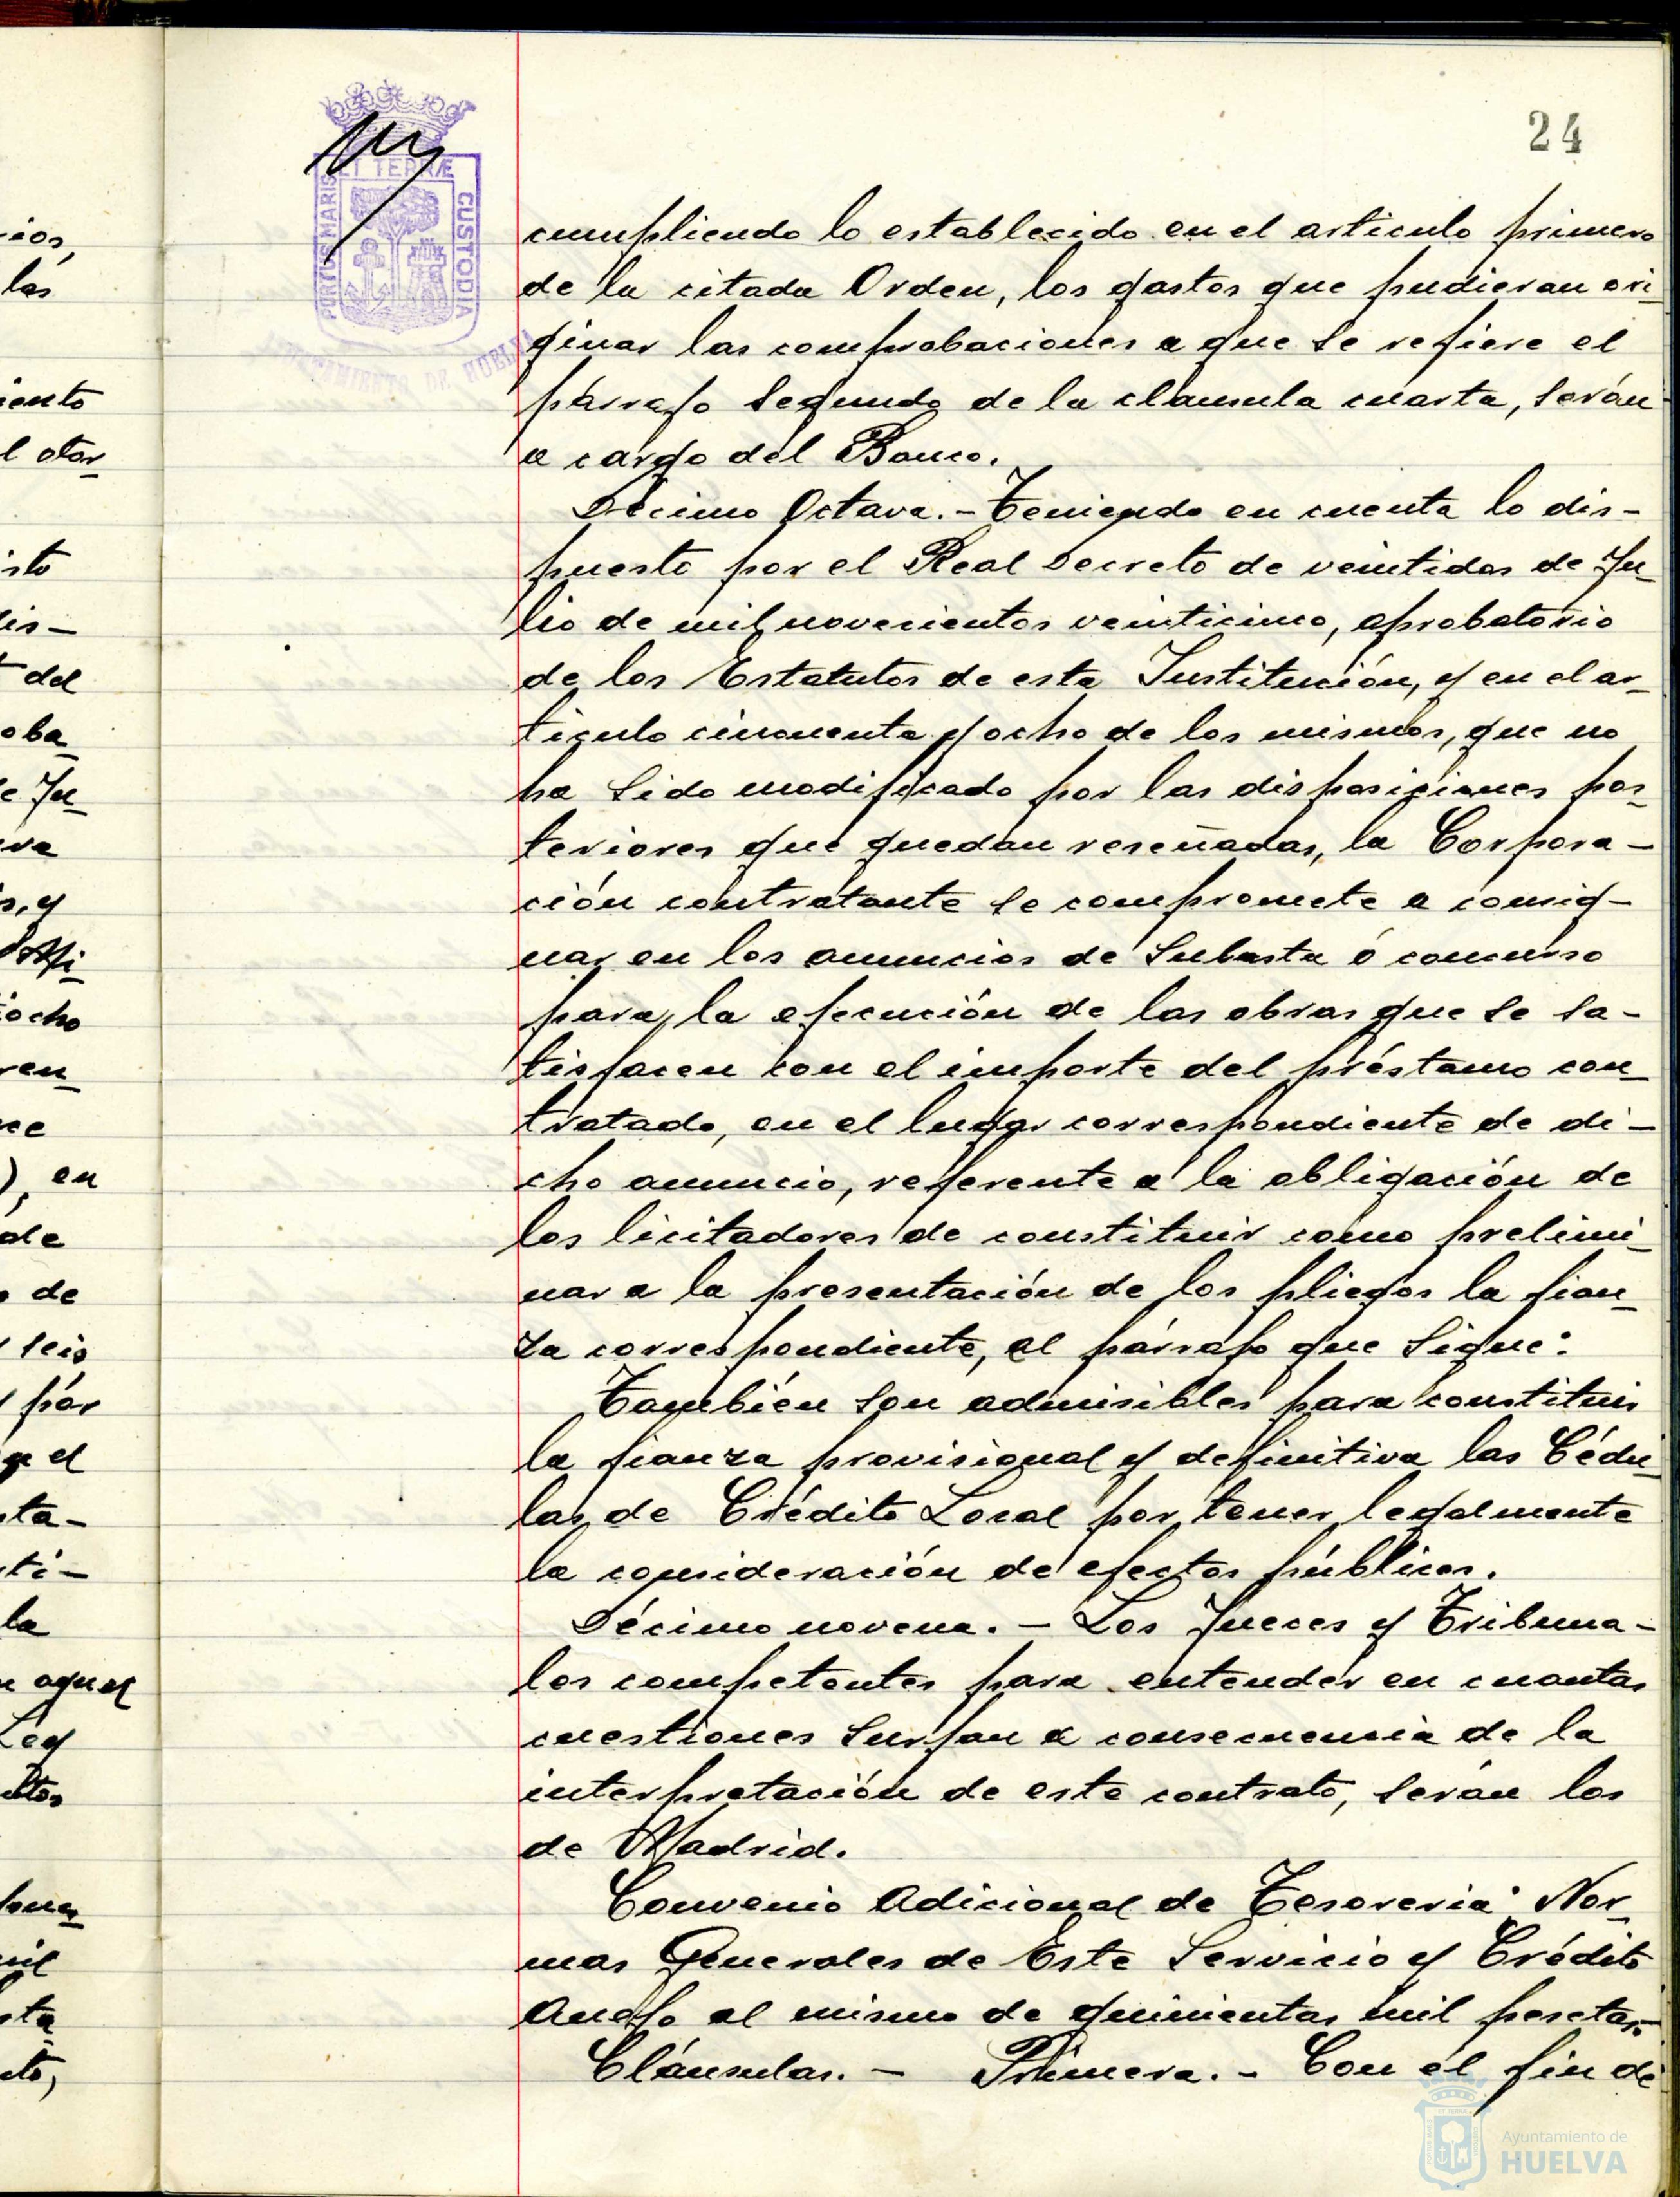 24
PORTUS MARIS ET TERRÆ CUSTODIA
AYUNTAMIENTO DE HUELVA
cumpliendo lo establecido en el articulo primero
de la citada Orden, los gastos que pudieran ori_
ginar las comprobaciones a que se refiere el
párrafo segundo de la clausula cuarta, serán
a cargo del Banco.
Décimo Octava.- Teniendo en cuenta lo dis-
puesto por el Real Decreto de veintidos de Ju_
lio de mil novecientos veinticinco, aprobatorio
de los Estatutos de esta Institución, y en el ar_
ticulo cincuenta y ocho de los mismos, que no
ha sido modificado por las disposiciones pos_
teriores que quedan reseñadas, la Corpora-
ción contratante se compromete a consig-
nar en los anuncios de subasta ó concurso
para la ejecución de las obras que se sa-
tisfacen con el importe del préstamo con_
tratado, en el lugar correspondiente de di-
cho anuncio, referente a la obligación de
los licitadores de constituir como prelimi_
nar a la presentación de los pliegos la fian_
za correspondiente, al párrafo que sigue:
También son admisibles para constituir
la fianza provisional y definitiva las Cédu_
las de Crédito Local por tener legalmente
la consideración de efectos públicos.
Décimo novena. - Los Jueces y Tribuna-
les competentes para entender en cuantas
cuestiones surjan a consecuencia de la
interpretación de este contrato, serán los
de Madrid.
Convenio Adicional de Tesoreria: Nor_
mas Generales de Este Servicio y Crédito
Anejo al mismo de quinientas mil pesetas.-
Cláusulas. - Primera. - Con el fin de
ios,
las
iento
l otor_
sto
dis-
del
oba_
e Ju_
s, y
ocho
ren_
), en
de
de
seis
por
el
sta-
sti-
la
aquel
Ley
mil
sta
Ayuntamiento de
HUELVA